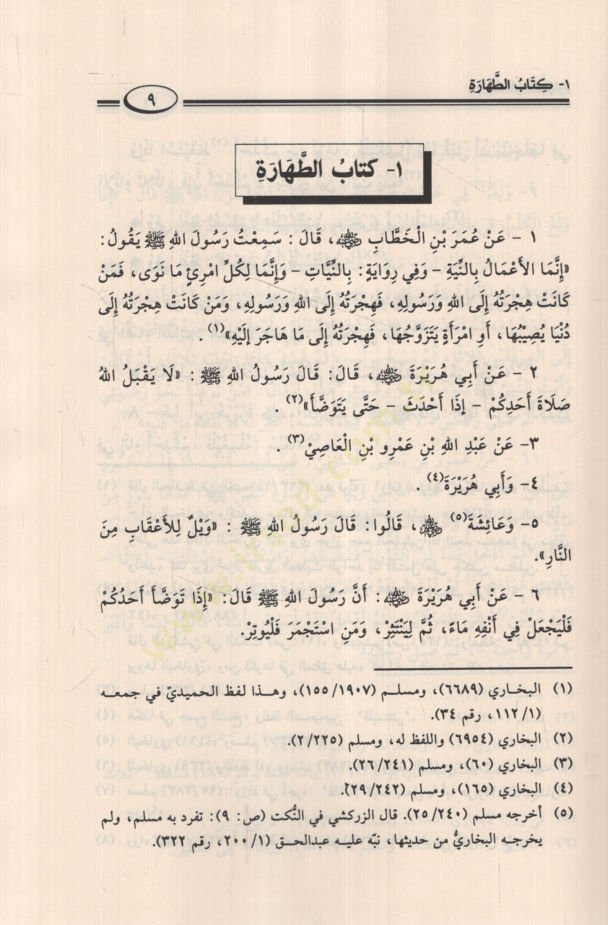 ١- كِتَابُ الطَّهَارَةِ
٩
١- كتابُ الطَّهَارَةِ
١ - عَنْ عُمَرَ بْنِ الْخَطَّابِ رضي الله عنه، قَالَ: سَمِعْتُ رَسُولَ اللهِ ﷺ يَقُولُ:
«إِنَّمَا الأَعْمَالُ بِالنِّيَّةِ - وَفِي رِوَايَةٍ: بِالنِّيَّاتِ - وَإِنَّمَا لِكُلِّ امْرِئٍ مَا نَوَى، فَمَنْ
كَانَتْ هِجْرَتُهُ إِلَى اللهِ وَرَسُولِهِ، فَهِجْرَتُهُ إِلَى اللهِ وَرَسُولِهِ، وَمَنْ كَانَتْ هِجْرَتُهُ إِلَى
دُنْيَا يُصِيْبُهَا، أَوِ امْرَأَةٍ يَتَزَوَّجُهَا، فَهِجْرَتُهُ إِلَى مَا هَاجَرَ إِلَيْهِ»(١) .
٢ - عَنْ أَبِي هُرَيْرَةَ رضي الله عنه، قَالَ: قَالَ رَسُولُ اللهِ ﷺ: «لَا يَقْبَلُ اللهُ
صَلَاةَ أَحَدِكُمْ - إِذَا أَحْدَثَ - حَتَّى يَتَوَضَّأَ»(٢) .
٣- عَنْ عَبْدِ اللهِ بْنِ عَمْرِو بْنِ الْعَاصِيْ(٣) .
٤- وَأَبِي هُرَيْرَةَ(٤) .
٥- وَعَائِشَةَ(٥) رضي الله عنهم، قَالُوا: قَالَ رَسُولُ اللهِ ﷺ: «وَيْلٌ لِلأَعْقَابِ مِنَ
النَّارِ».
٦ - عَنْ أَبِي هُرَيْرَةَ رضي الله عنه: أَنَّ رَسُولَ اللهِ ﷺ قَالَ: «إِذَا تَوَضَّأَ أَحَدُكُمْ
فَلْيَجْعَلْ فِي أَنْفِهِ مَاءً، ثُمَّ لِيَنْتَثِرْ، وَمَنِ اسْتَجْمَرَ فَلْيُوتِرْ.
(١) البخاري (٦٦٨٩)، ومسلم (١٥٥/١٩٠٧)، وهذا لفظ الحميديّ في جمعه
(١/ ١١٢، رقم ٣٤).
(٢) البخاري (٦٩٥٤) واللفظ له، ومسلم (٢/٢٢٥).
(٣) البخاري (٦٠)، ومسلم (٢٦/٢٤١).
(٤) البخاري (١٦٥)، ومسلم (٢٩/٢٤٢).
(٥) أخرجه مسلم (٢٥/٢٤٠). قال الزركشي في النُّكت (ص: ٩): تفرد به مسلم، ولم
يخرجه البخاريُّ من حديثها، نبّه عليه عبدالحق (١/ ٢٠٠، رقم ٣٢٢).